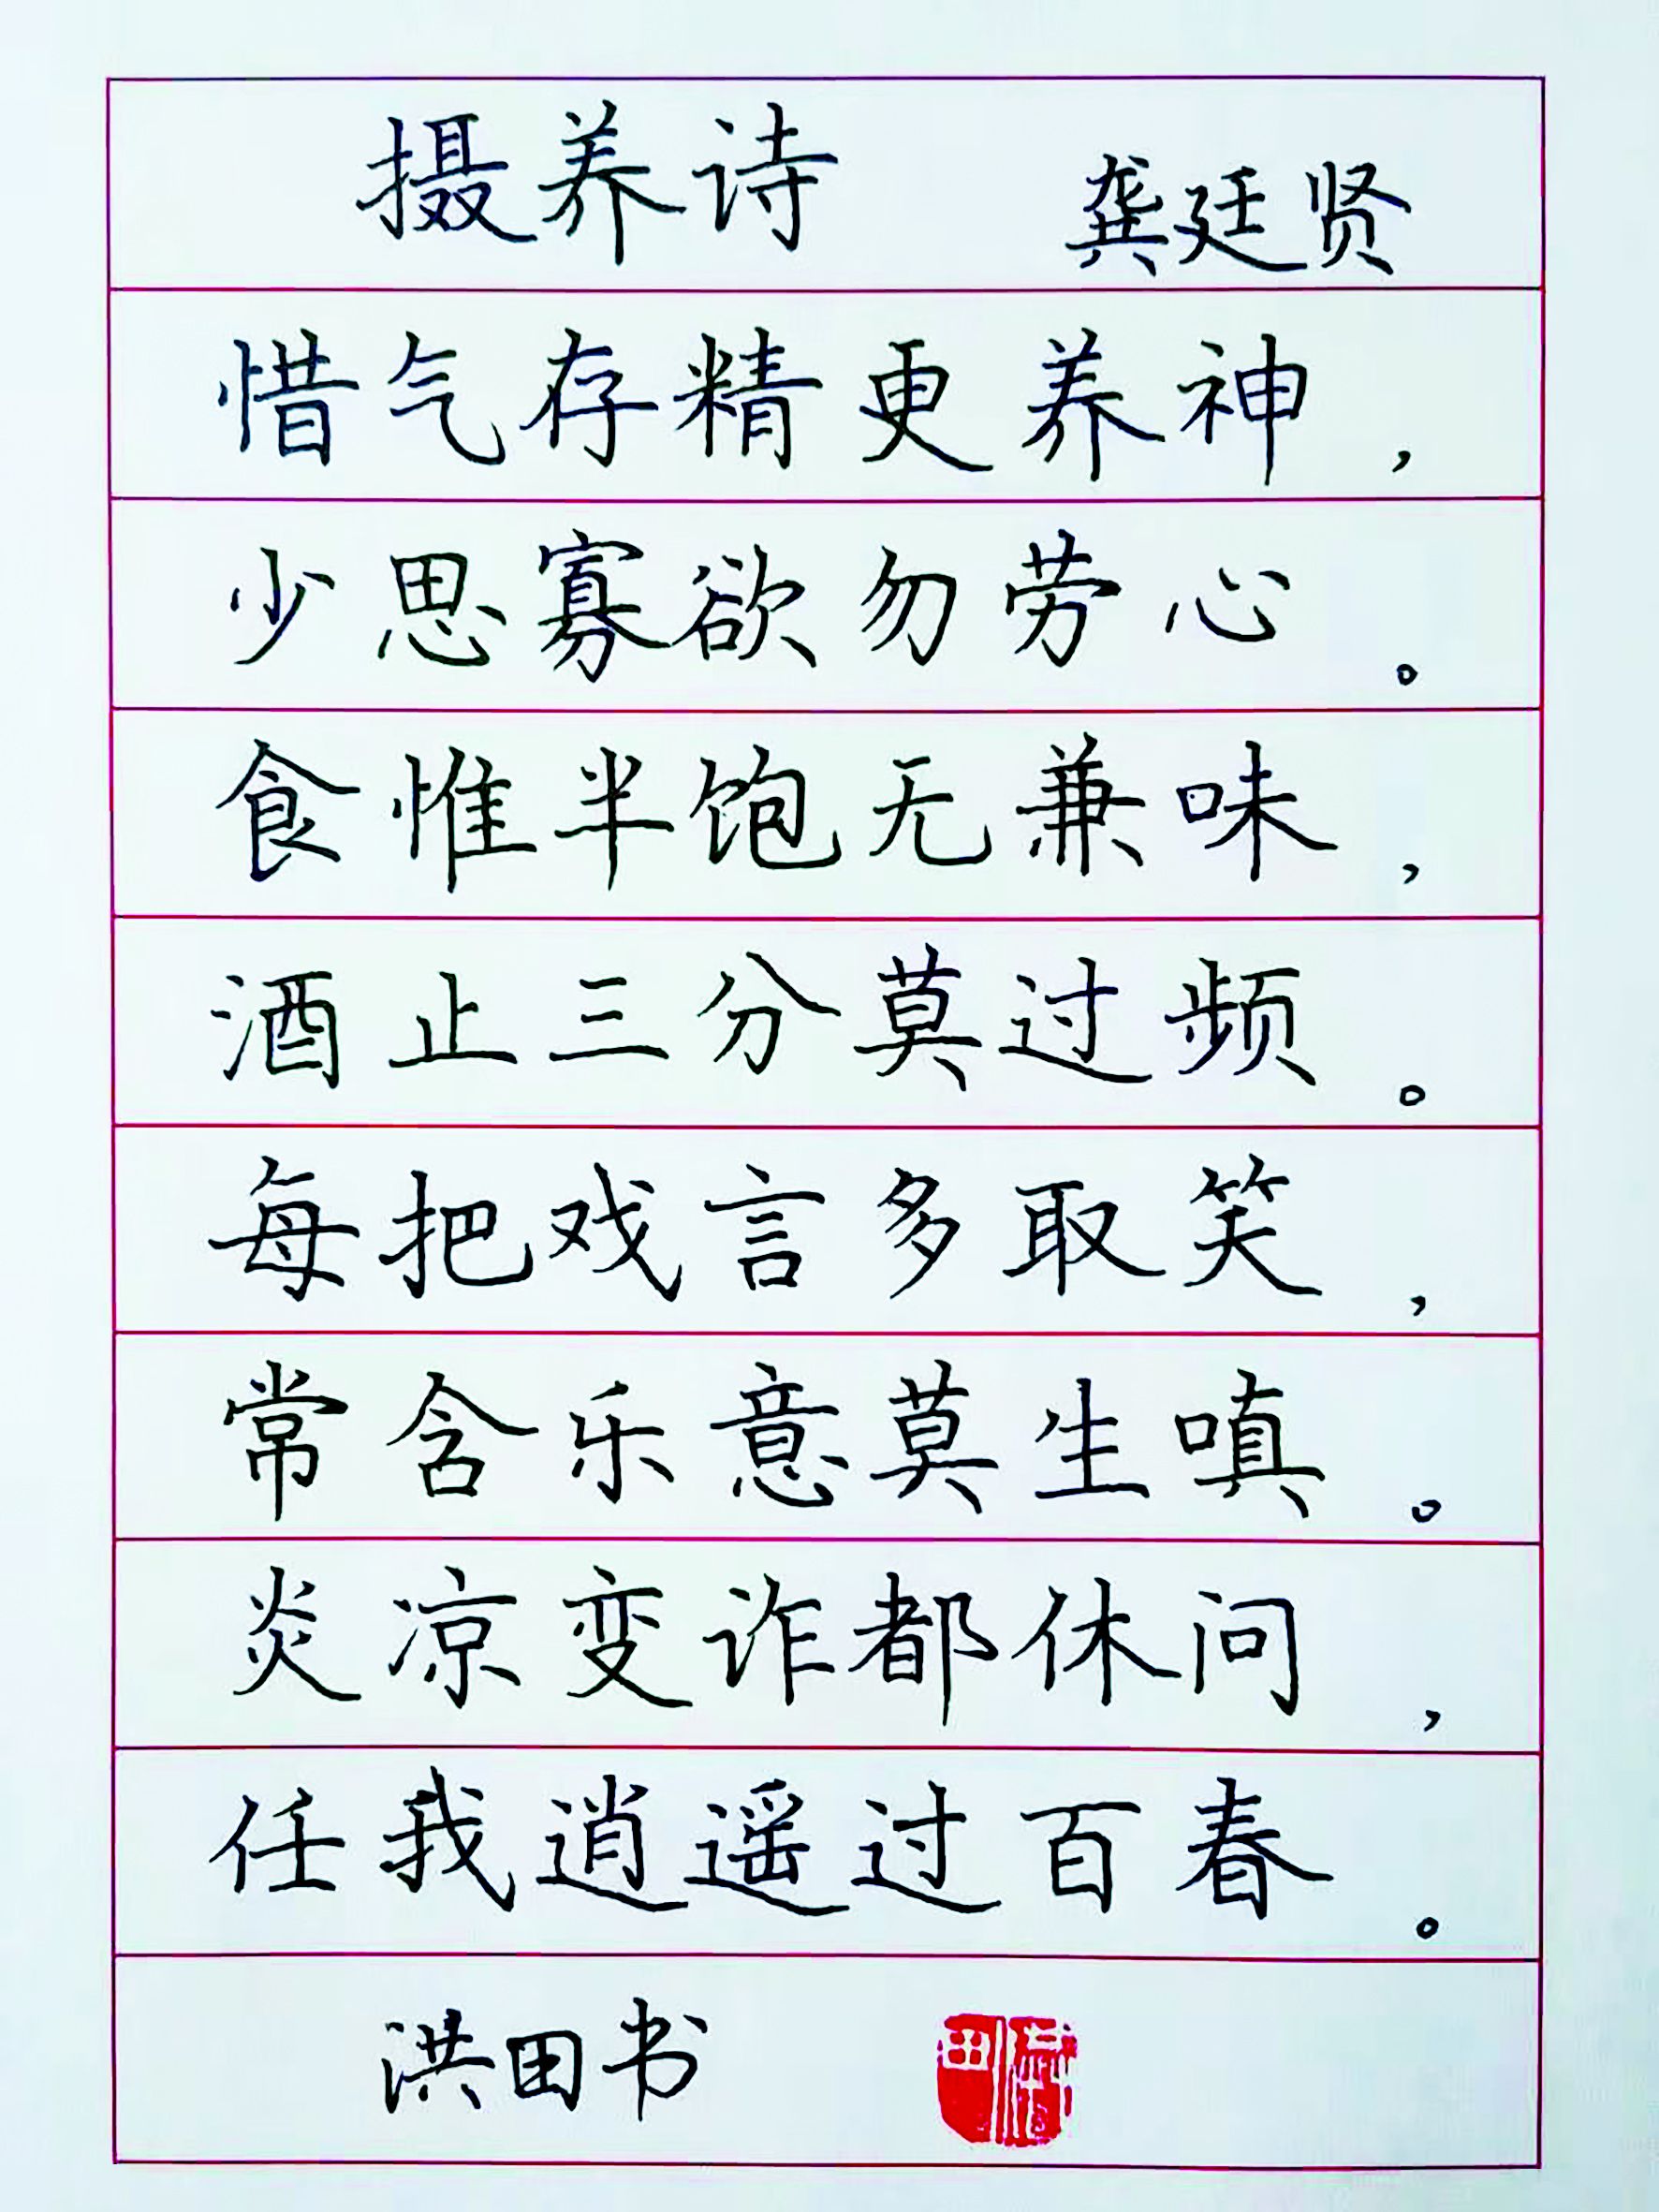 摄养诗 龚廷贤
惜气存精更养神，
少思寡欲勿劳心。
食惟半饱无兼味，
酒止三分莫过频。
每把戏言多取笑，
常含乐意莫生嗔。
炎凉变诈都休问，
任我逍遥过百春。
洪田书